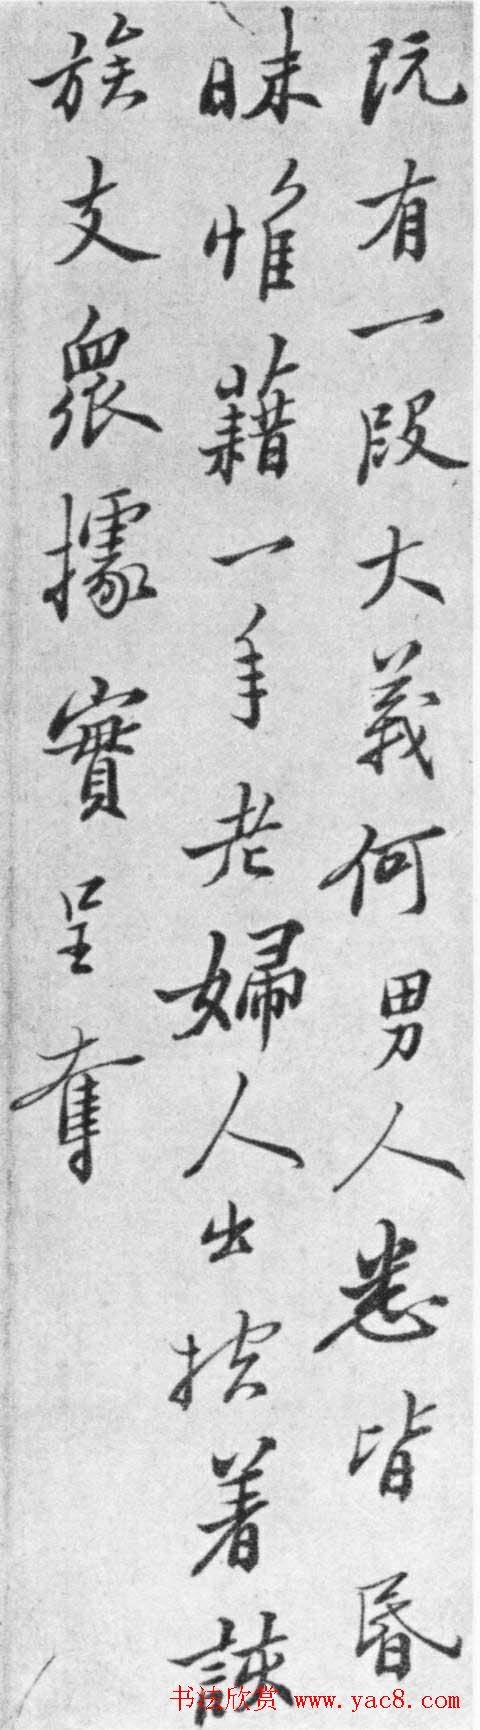 既有一段大義何男人悉皆昏
昧惟藉一手老婦人出控着該
族支眾據實呈奪
书法欣赏 www.yac8.com